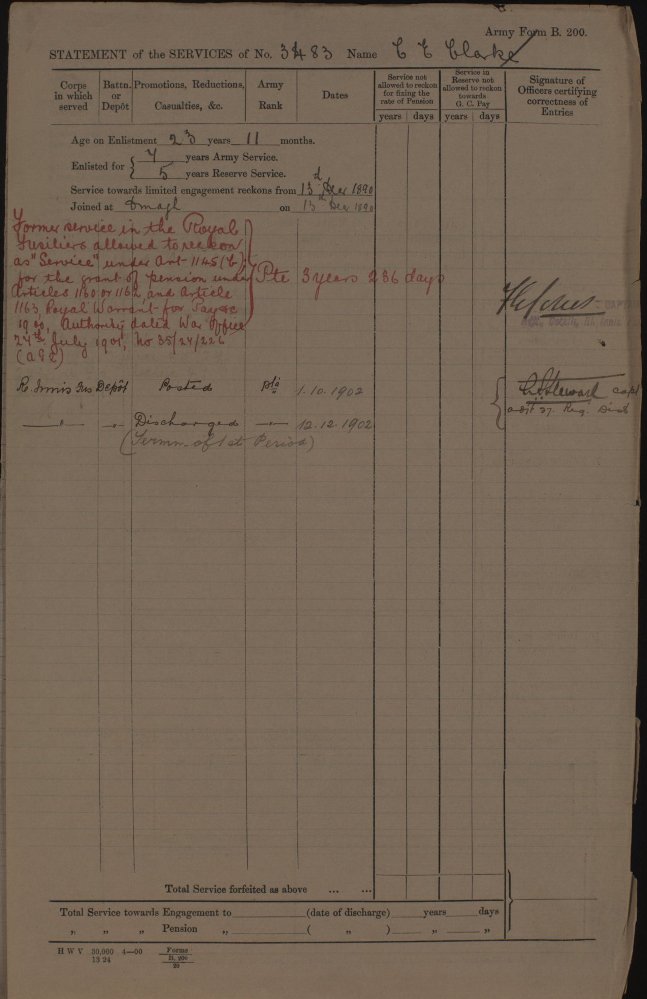 Army Form B. 200.
STATEMENT of the SERVICES of No. 3483 Name C E Clarke
Corps in which served
Battn. or Depôt
Promotions, Reductions, Casualties, &c.
Army Rank
Dates
Service not allowed to reckon for fixing the rate of Pension
years days
Service in Reserve not allowed to reckon towards G. C. Pay
years days
Signature of Officers certifying correctness of Entries
Age on Enlistment 23 years 11 months.
Enlisted for { 7 years Army Service.
5 years Reserve Service.
Service towards limited engagement reckons from 13 Dec 1890
Joined at Omagh on 13 Dec 1890
Former service in the Royal
Fusiliers allowed to reckon
as "Service" under Art 1145 (b)
for the grant of pension under
Articles 1160 or 1162 and Article
1163, Royal Warrant for Pay &c
1900, Authority dated War Office
24th July 1901, No 35/24/226
(AG2)
Pte 3 years 236 days
R. Innis Fus Depôt Posted Pte 1.10.1902
" " Discharged " 12.12.1902
(Termn. of 1st Period)
Stewart Capt
Adjt 27. Reg. Dist
Total Service forfeited as above ... ...
Total Service towards Engagement to (date of discharge) years days
" " " Pension " ( " ) " "
H W V 30,000 4—00 Forms
13 24 B. 200
20